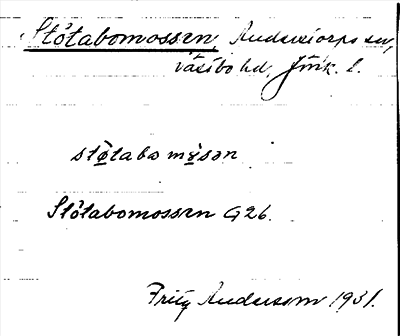 Stötabomossen, Anderstorps sn,
Västbo hd, Jönk. l.
støtabo mɷsən
Stötabomossen G26.
Fritz Andersson 1931.